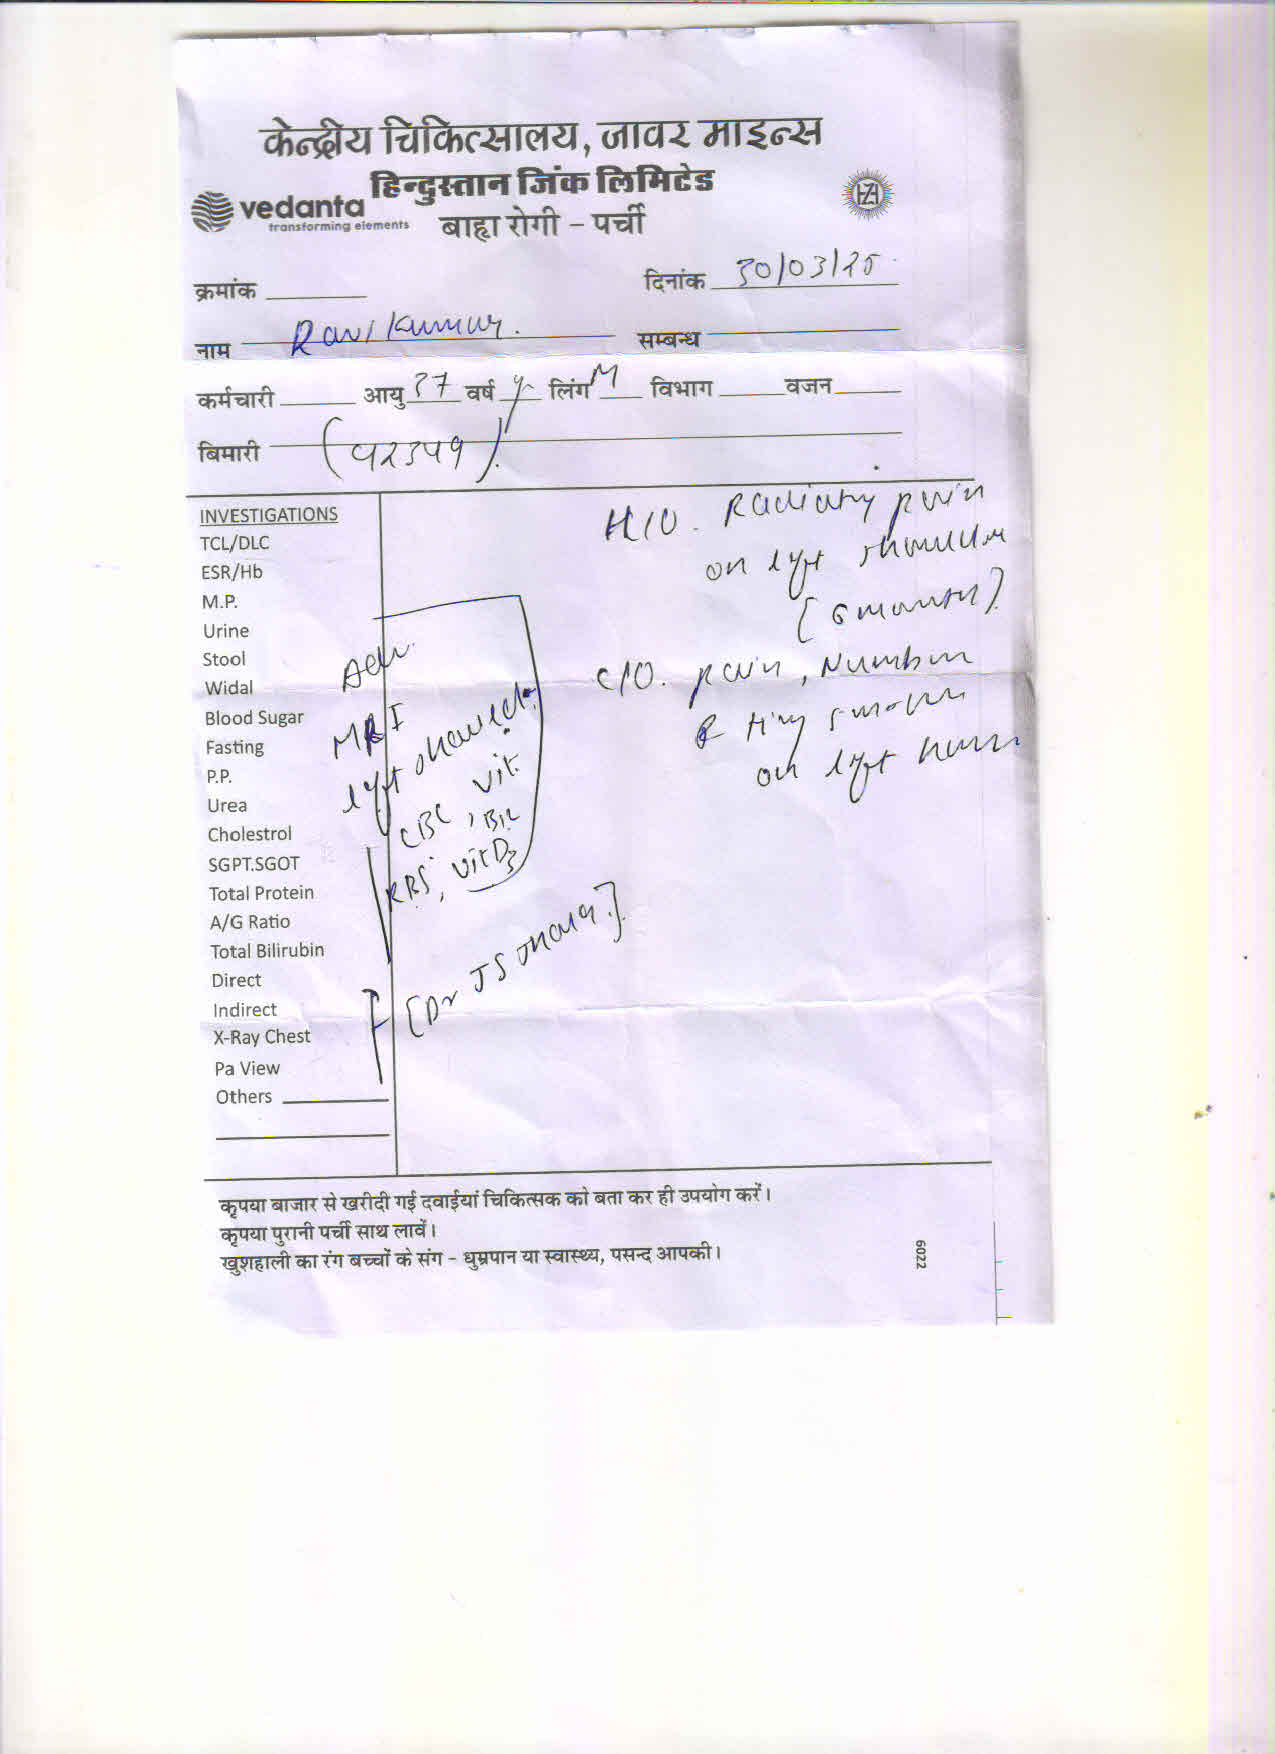 केन्द्रीय चिकित्सालय, जावर माइन्स
हिन्दुस्तान जिंक लिमिटेड
vedanta
transforming elements
बाहृा रोगी - पर्ची
HZ
क्रमांक
दिनांक 30/03/25
नाम Ravi Kumar.
सम्बन्ध
कर्मचारी आयु 37 वर्ष y लिंग M विभाग वजन
बिमारी (92349)
INVESTIGATIONS
TCL/DLC
ESR/Hb
M.P.
Urine
Stool
Widal
Blood Sugar
Fasting
P.P.
Urea
Cholestrol
SGPT.SGOT
Total Protein
A/G Ratio
Total Bilirubin
Direct
Indirect
X-Ray Chest
Pa View
Others
Adv.
MRI
left
CBC, Vit.
B12
RBS, Vit D3
[Dr JS
H/O. Radiating pain
on left shoulder
[6 months]
C/O. pain,
on left
कृपया बाजार से खरीदी गई दवाईयां चिकित्सक को बता कर ही उपयोग करें।
कृपया पुरानी पर्ची साथ लावें।
खुशहाली का रंग बच्चों के संग - धुम्रपान या स्वास्थ्य, पसन्द आपकी।
6022